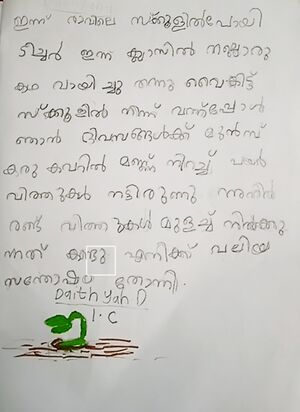 ഇന്ന് രാവിലെ സ്ക്കൂളിൽപോയി
ടീച്ചർ ഇന്ന് ക്ലാസിൽ നല്ലൊരു
കഥ വായിച്ചു തന്നു വൈകിട്ട്
സ്ക്കൂളിൽ നിന്ന് വന്നപ്പോൾ
ഞാൻ ദിവസങ്ങൾക്ക് മുൻമ്പ്
കവറിൽ മണ്ണ് നിറച്ച് പയർ
വിത്തുകൾ നട്ടിരുന്നു
രണ്ട് വിത്തുകൾ മുളച്ച് നിൽക്കു
ന്നത് കണ്ടു എനിക്ക് വലിയ
സന്തോഷം തോന്നി.
1.C